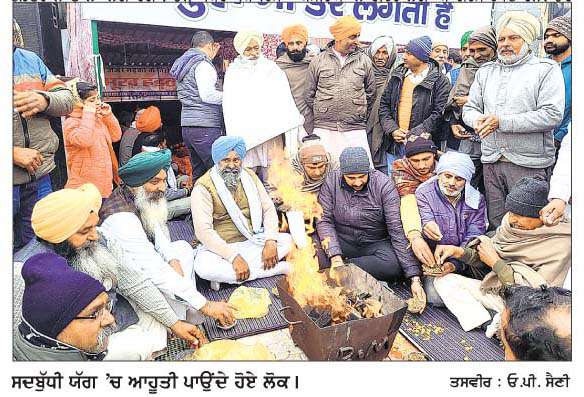 डर लगता है
ਸਦਬੁੱਧੀ ਯੱਗ 'ਚ ਆਹੂਤੀ ਪਾਉਂਦੇ ਹੋਏ ਲੋਕ। ਤਸਵੀਰ : ਓ.ਪੀ. ਸੈਣੀ